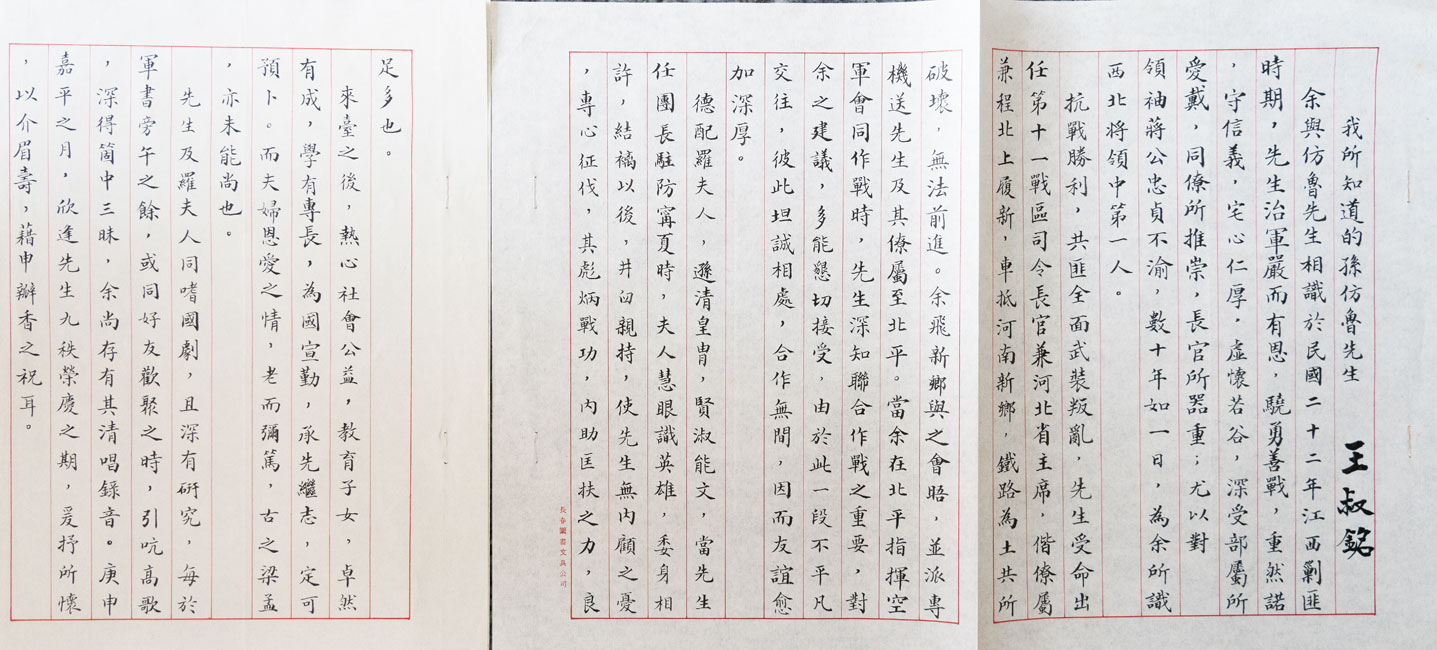 我所知道的孫仿魯先生
王叔銘
余與仿魯先生相識於民國二十二年江西剿匪
時期，先生治軍嚴而有恩，驍勇善戰，重然諾
，守信義，宅心仁厚，虛懷若谷，深受部屬所
愛戴，同僚所推崇，長官所器重；尤以對
領袖蔣公忠貞不渝，數十年如一日，為余所識
西北將領中第一人。
抗戰勝利，共匪全面武裝叛亂，先生受命出
任第十一戰區司令長官兼河北省主席，偕僚屬
兼程北上履新，車抵河南新鄉，鐵路為土共所
破壞，無法前進。余飛新鄉與之會晤，並派專
機送先生及其僚屬至北平。當余在北平指揮空
軍會同作戰時，先生深知聯合作戰之重要，對
余之建議，多能懇切接受，由於此一段不平凡
交往，彼此坦誠相處，合作無間，因而友誼愈
加深厚。
德配羅夫人，遜清皇胄，賢淑能文，當先生
任團長駐防甯夏時，夫人慧眼識英雄，委身相
許，結褵以後，井臼親持，使先生無內顧之憂
，專心征伐，其彪炳戰功，內助匡扶之力，良
長春圖書文具公司
足多也。
來臺之後，熱心社會公益，教育子女，卓然
有成，學有專長，為國宣勤，承先繼志，定可
預卜。而夫婦恩愛之情，老而彌篤，古之梁孟
，亦未能尚也。
先生及羅夫人同嗜國劇，且深有研究，每於
軍書旁午之餘，或同好友歡聚之時，引吭高歌
，深得箇中三昧，余尚存有其清唱錄音。庚申
嘉平之月，欣逢先生九秩榮慶之期，爰抒所懷
，以介眉壽，藉申瓣香之祝耳。